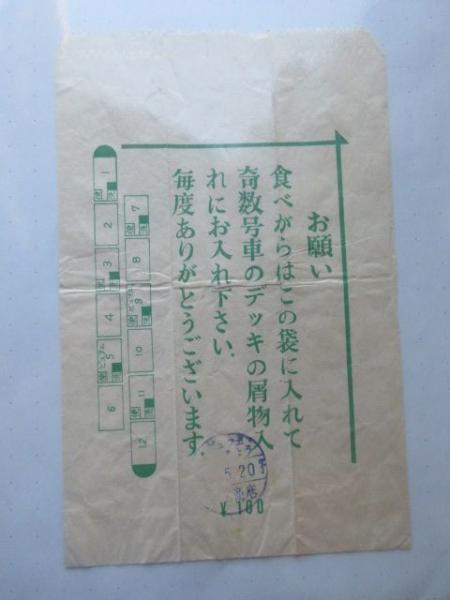 お願い
食べがらはこの袋に入れて
奇数号車のデッキの屑物入
れにお入れ下さい.
毎度ありがとうございます.
1
2
3
4
ビュフェ
5
6
7
8
ビュフェ
9
10
11
12
5.20
¥100